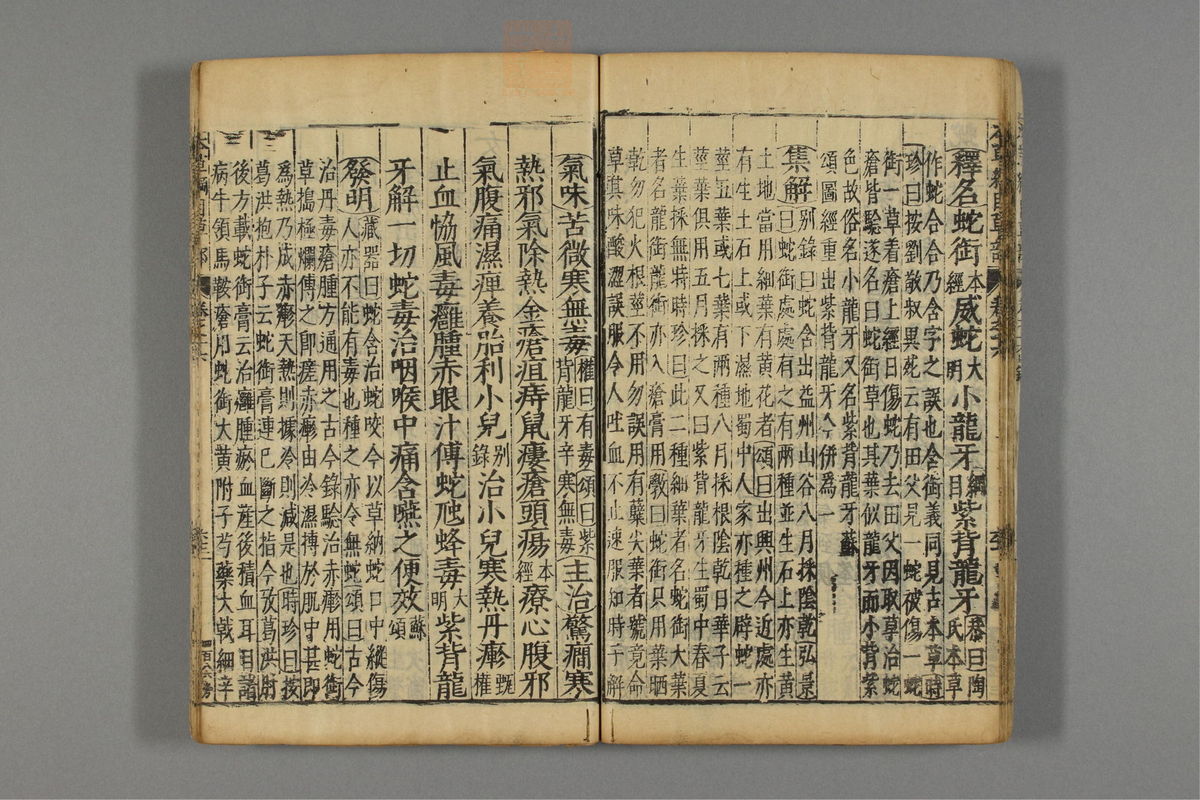 釋名蛇銜本經威蛇大明小龍牙綱目紫背龍牙恭曰陶氏本草
作蛇合合乃含字之誤也含銜義同見古本草時
珍曰按劉敬叔異苑云有田父見一蛇被傷一蛇
銜一草着瘡上經日傷蛇乃去田父因取草治蛇
瘡皆驗遂名曰蛇銜草也其葉似龍牙而小背紫
色故俗名小龍牙又名紫背龍牙蘇
頌圖經重出紫背龍牙今併為一
集解别錄曰蛇含出益州山谷八月採陰乾弘景
曰蛇銜處處有之有兩種並生石上亦生黃
土地當用細葉有黃花者頌曰出興州今近處亦
有生土石上或下濕地蜀中人家亦種之辟蛇一
莖五葉或七葉有兩種八月採根陰乾日華子云
莖葉俱用五月採之又曰紫背龍牙生蜀中春夏
生葉採無時時珍曰此二種細葉者名蛇銜大葉
者名龍銜龍銜亦入瘡膏用斅曰蛇銜只用葉晒
乾勿犯火根莖不用勿誤用有蘖尖葉者號竟命
草其味酸澀誤服令人吐血不止速服知時子解
氣味苦微寒無毒權曰有毒頌曰紫背龍牙辛寒無毒主治驚癇寒
熱邪氣除熱金瘡疽痔鼠瘻瘡頭瘍本經療心腹邪
氣腹痛濕痺養胎利小兒别錄治小兒寒熱丹瘮甄權
止血恊風毒癰腫赤眼汁傅蛇虺蜂毒大明紫背龍
牙解一切蛇毒治咽喉中痛含嚥之便效蘇頌
發明藏器曰蛇含治蛇咬今以草納蛇口中縱傷
人亦不能有毒也種之亦令無蛇頌曰古今
治丹毒瘡腫方通用之古今錄驗治赤瘮用蛇銜
草搗極爛傅之即瘥赤瘮由冷濕搏於肌中甚即
為熱乃成赤瘮天熱則據冷則減是也時珍曰按
葛洪抱朴子云蛇銜膏連已斷之指今攷葛洪肘
後方載蛇銜膏云治癰腫瘀血產後積血耳目諸
病牛領馬鞍瘡用蛇銜大黃附子芍藥大戟細辛